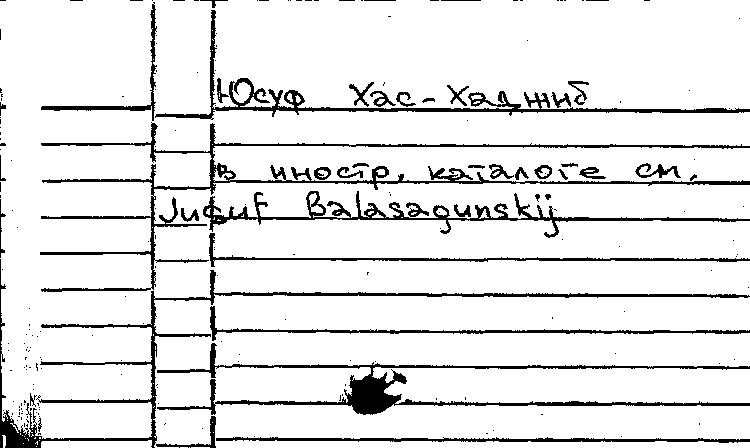 Юсуф Хас-Хаджиб
в иностр. каталоге см.
Jusuf Balasagunskij